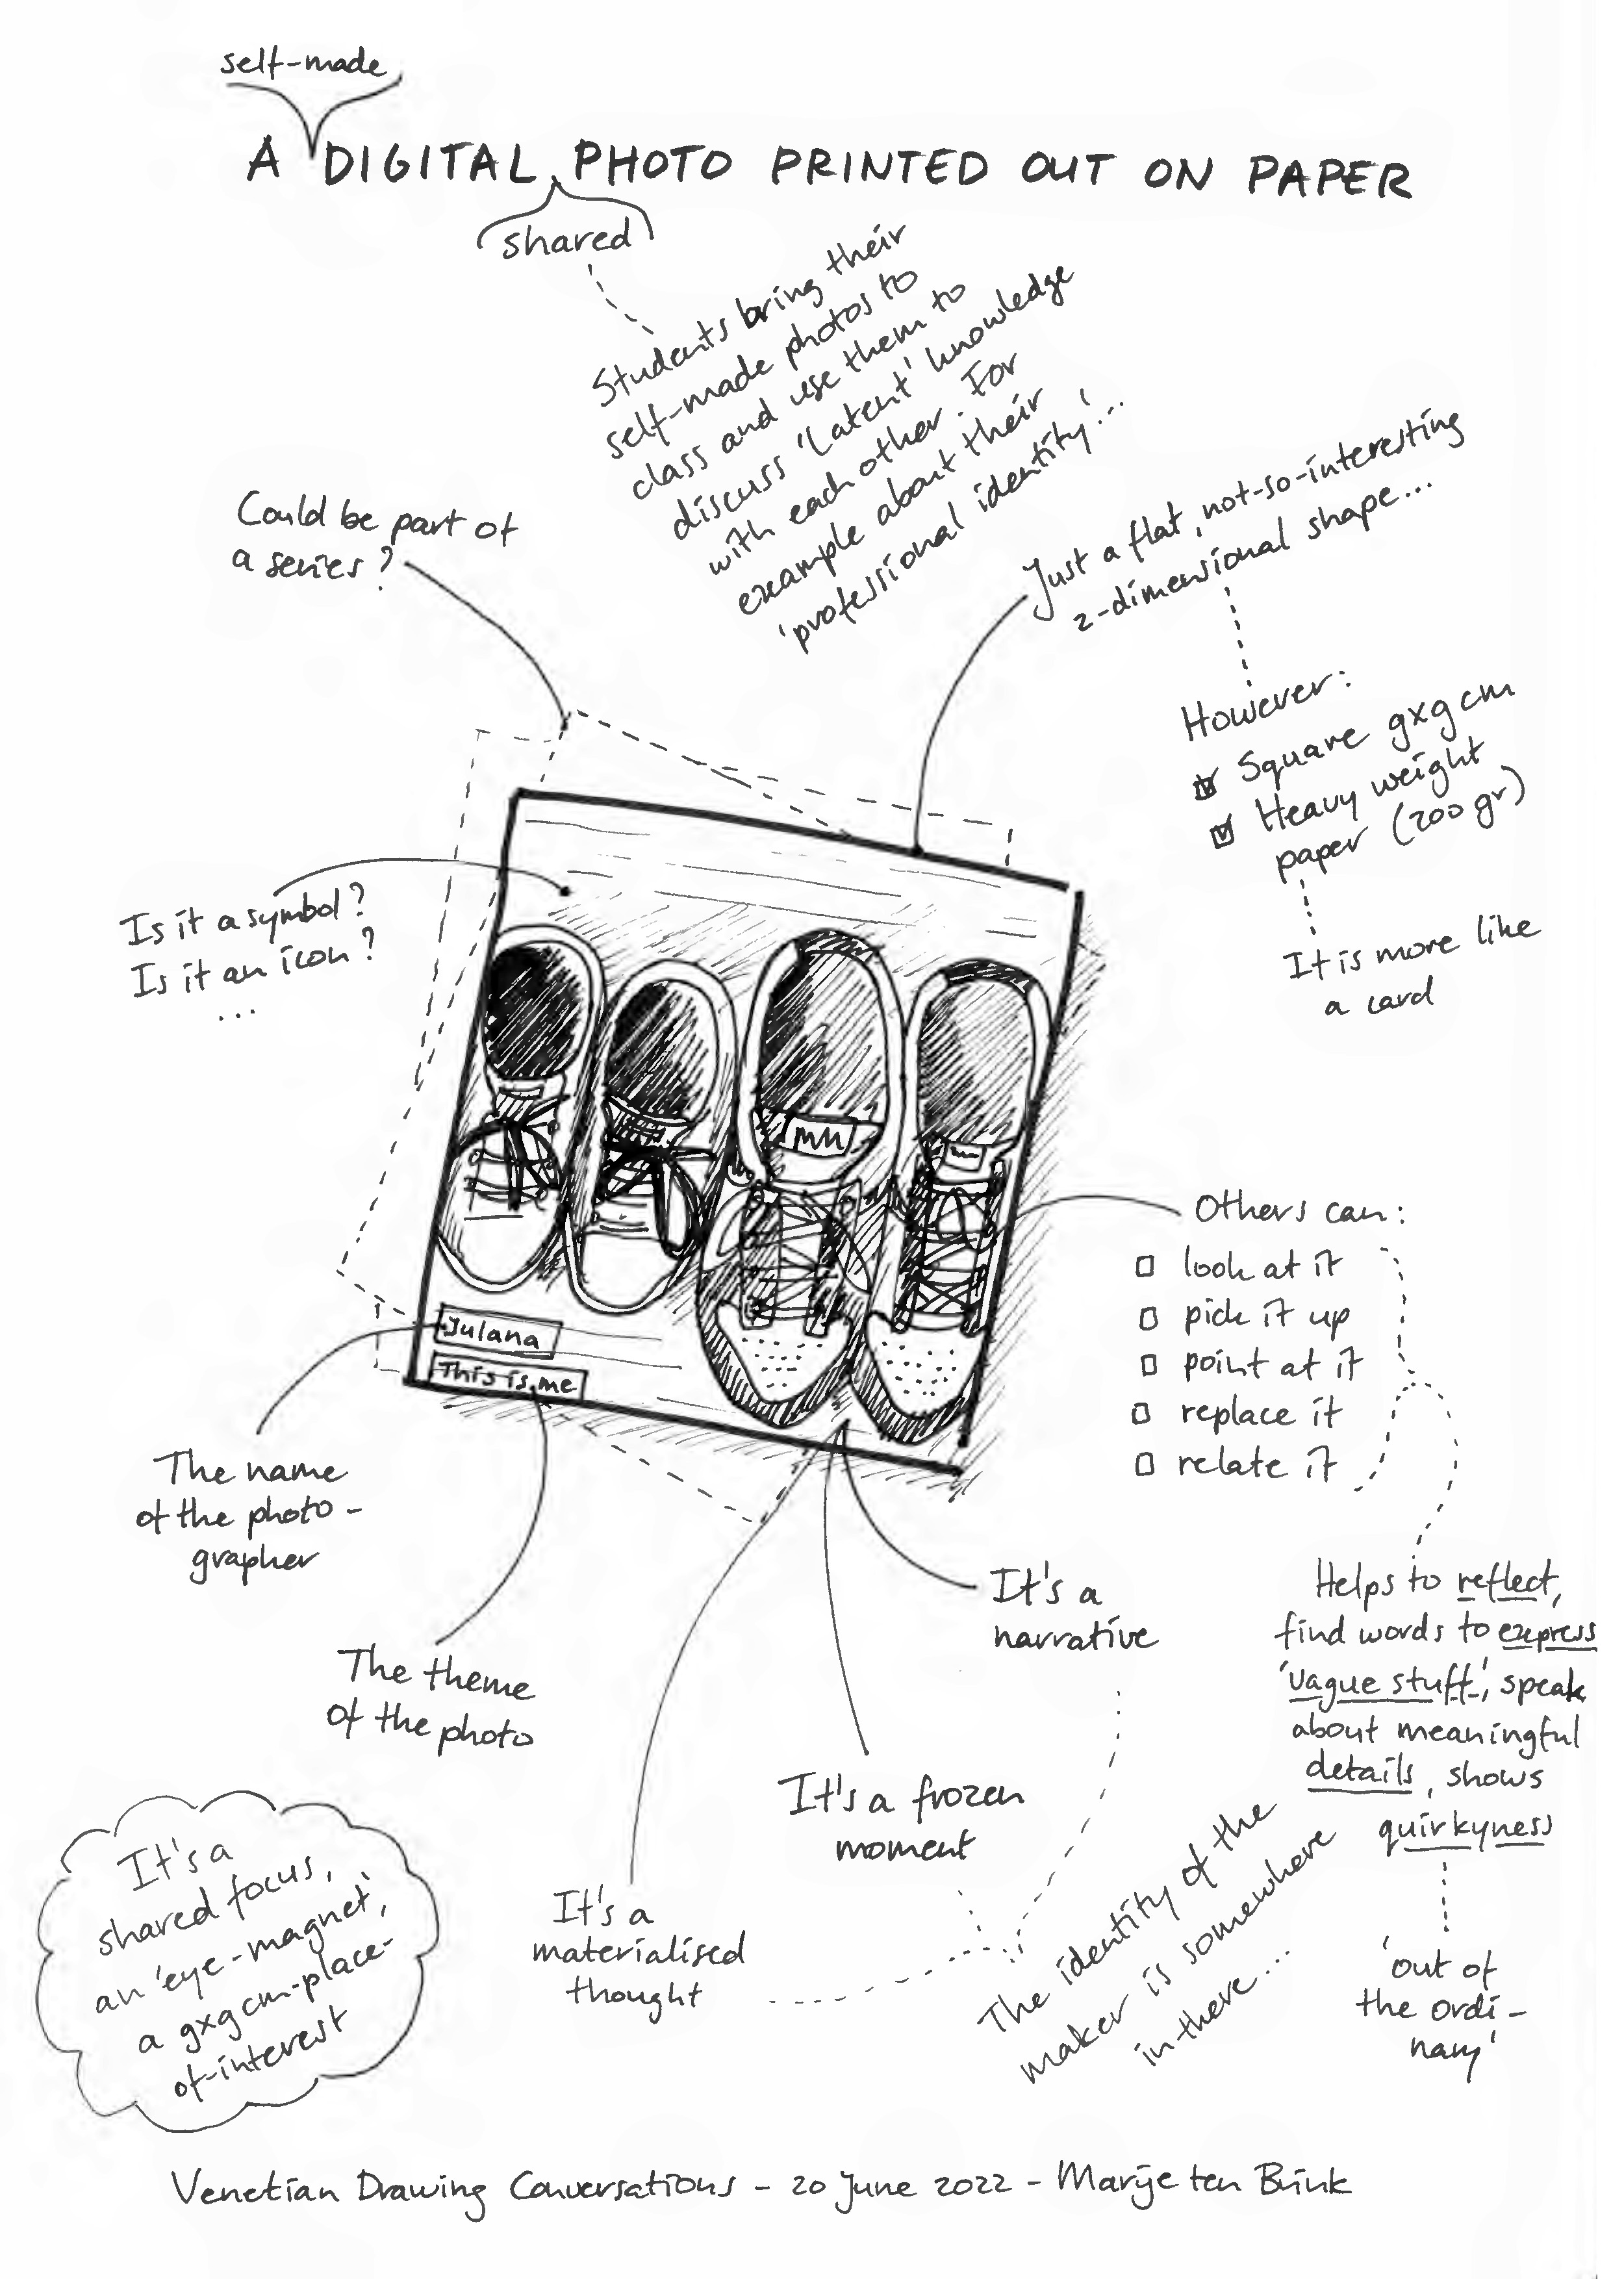 self-made
A DIGITAL PHOTO PRINTED OUT ON PAPER
shared
Students bring their
self-made photos to
class and use them to
discuss 'latent' knowledge
with each other. For
example about their
'professional identity'...
Could be part of
a series?
Just a flat, not-so-interesting
2-dimensional shape...
However:
Square 9x9 cm
Heavy weight
paper (200 gr)
It is more like
a card
Is it a symbol?
Is it an icon?
...
Julana
This is me
Others can:
look at it
pick it up
point at it
replace it
relate it
The name
of the photo-
grapher
The theme
of the photo
It's a
narrative
It's a frozen
moment
It's a
materialised
thought
The identity of the
maker is somewhere
in there...
Helps to reflect,
find words to express
'vague stuff', speak
about meaningful
details, shows
quirkyness
'out of
the ordi-
nary'
It's a
shared focus,
an 'eye-magnet',
a 9x9cm-place-
of-interest
Venetian Drawing Conversations - 20 June 2022 - Marije ten Brink